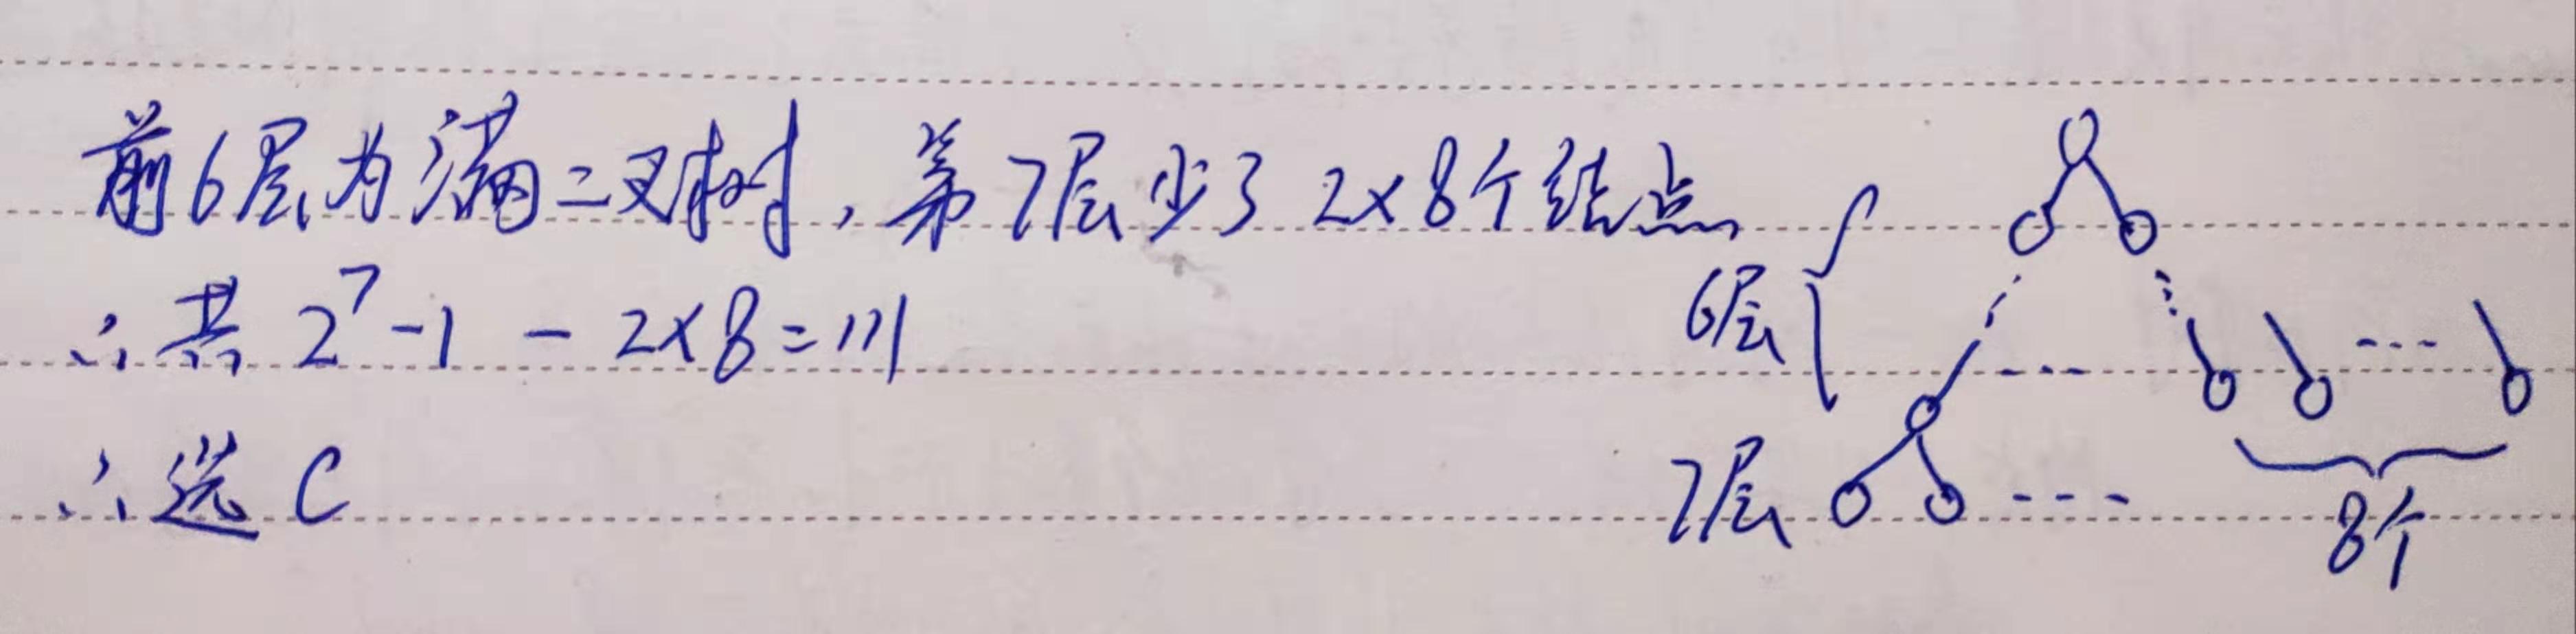 前6层为满二叉树，第7层少了2×8个结点
∴共 2⁷-1-2×8=111
∴选C
6层
7层
8个